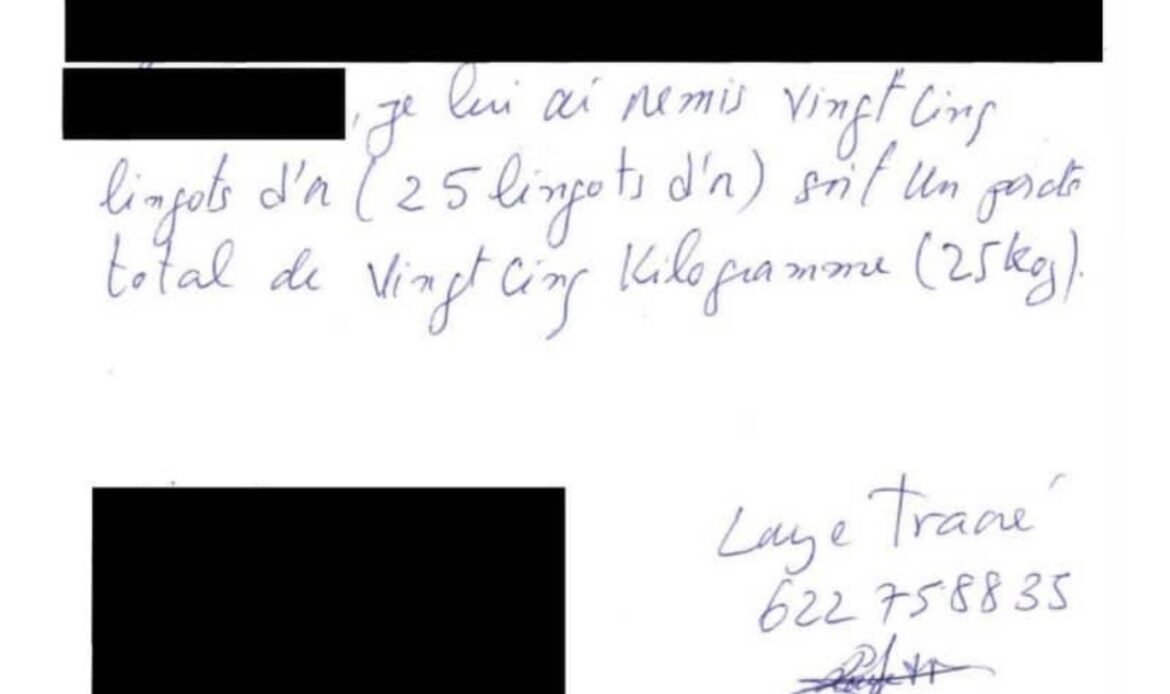 , je lui ai remis vingt cinq
lingots d'or (25 lingots d'or) soit Un poids
total de Vingt Cinq Kilogramme (25kg).
Laye Traoré
622 758835